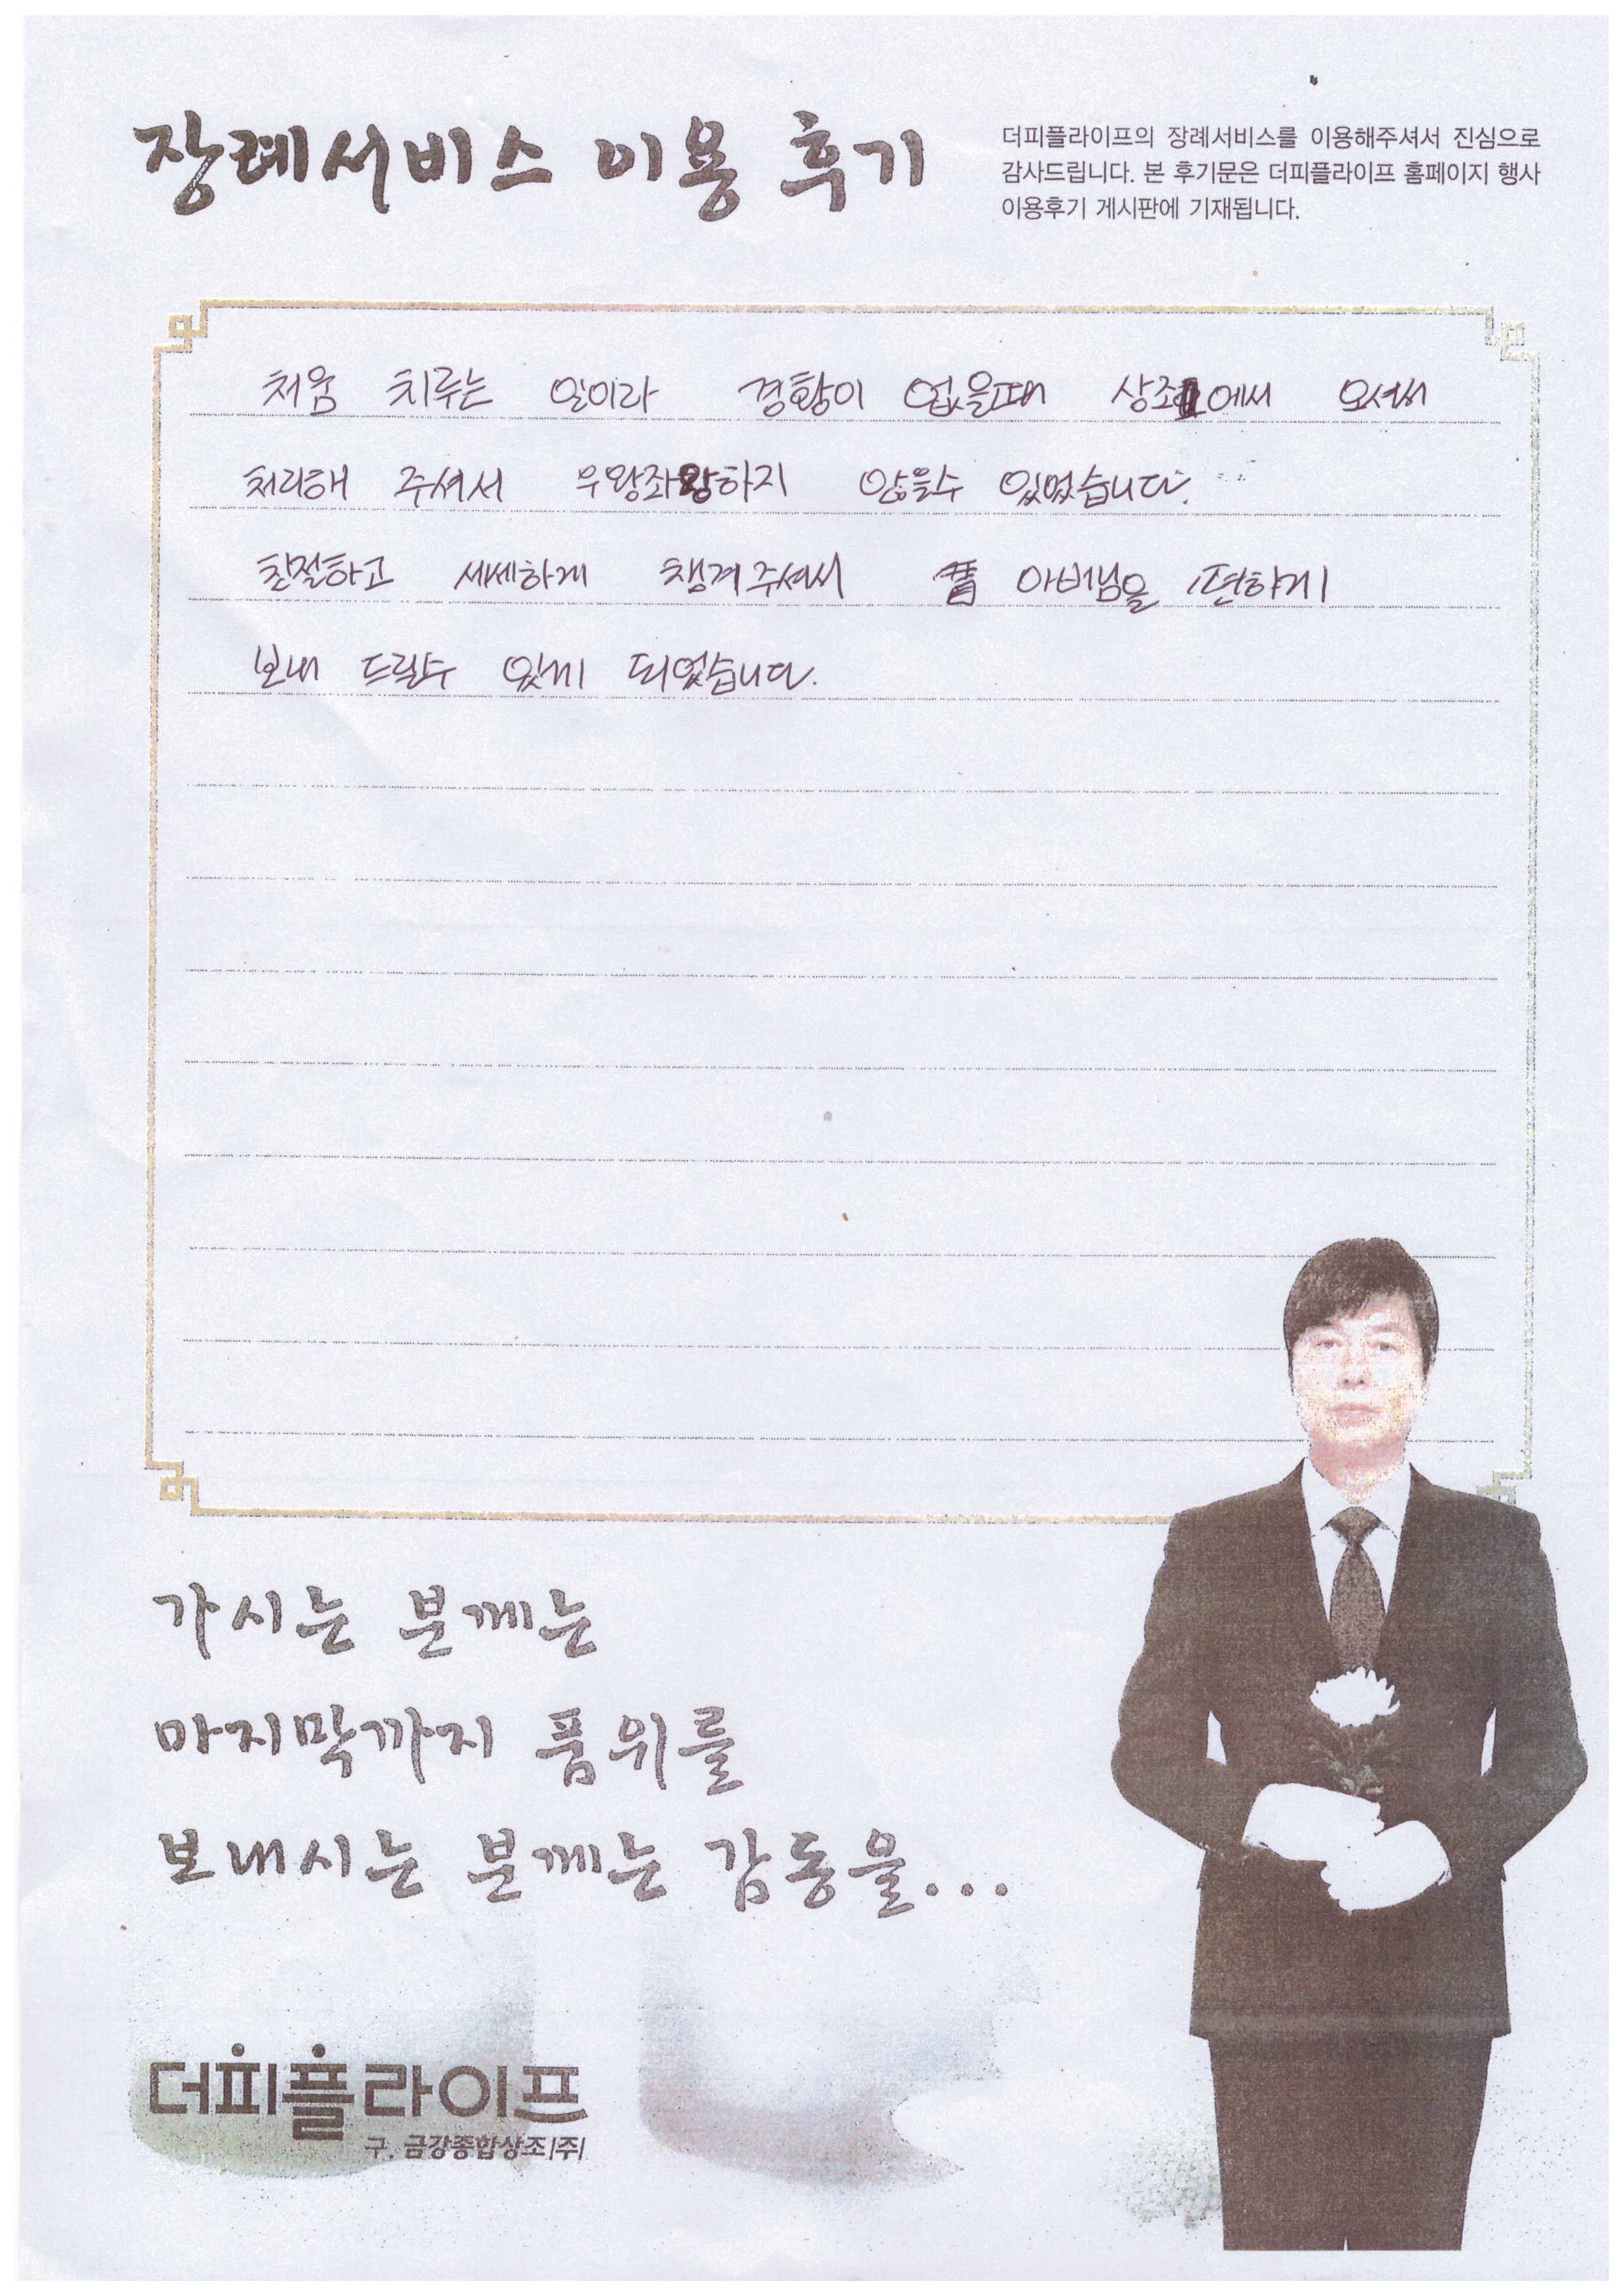 장례서비스 이용 후기
더피플라이프의 장례서비스를 이용해주셔서 진심으로
감사드립니다. 본 후기문은 더피플라이프 홈페이지 행사
이용후기 게시판에 기재됩니다.
처음 치루는 일이라 경황이 없을때 상조에서 오셔서
처리해 주셔서 우왕좌왕하지 않을수 있었습니다.
친절하고 세세하게 챙겨주셔서 아버님을 편하게
보내 드릴수 있게 되었습니다.
가시는 분께는
마지막까지 품위를
보내시는 분께는 감동을...
더피플라이프
구. 금강종합상조|주|